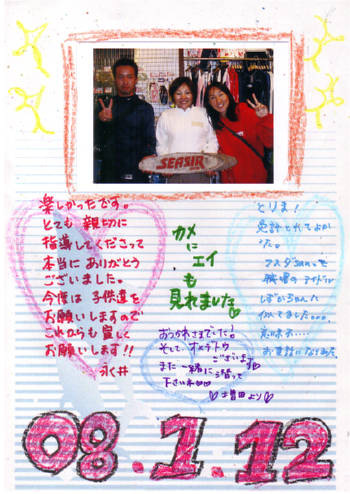 SEASIR
楽しかったです。
とても 親切に
指導してくださって
本当に ありがとう
ございました。
今度は 子供達を
お願いしますので
これからも宜しく
お願いします!!
永井
カメ
に
エイ
も
見れました
おつかれさまでした!
そして、オメデトウ
ございます
また 一緒に潜って
下さいネ♡♡
♡増田より♡
とりま!
免許とれてよか
った。
職場のアイドル
しずかちゃんに
似てました。。。
お世話になりました。
08.1.12